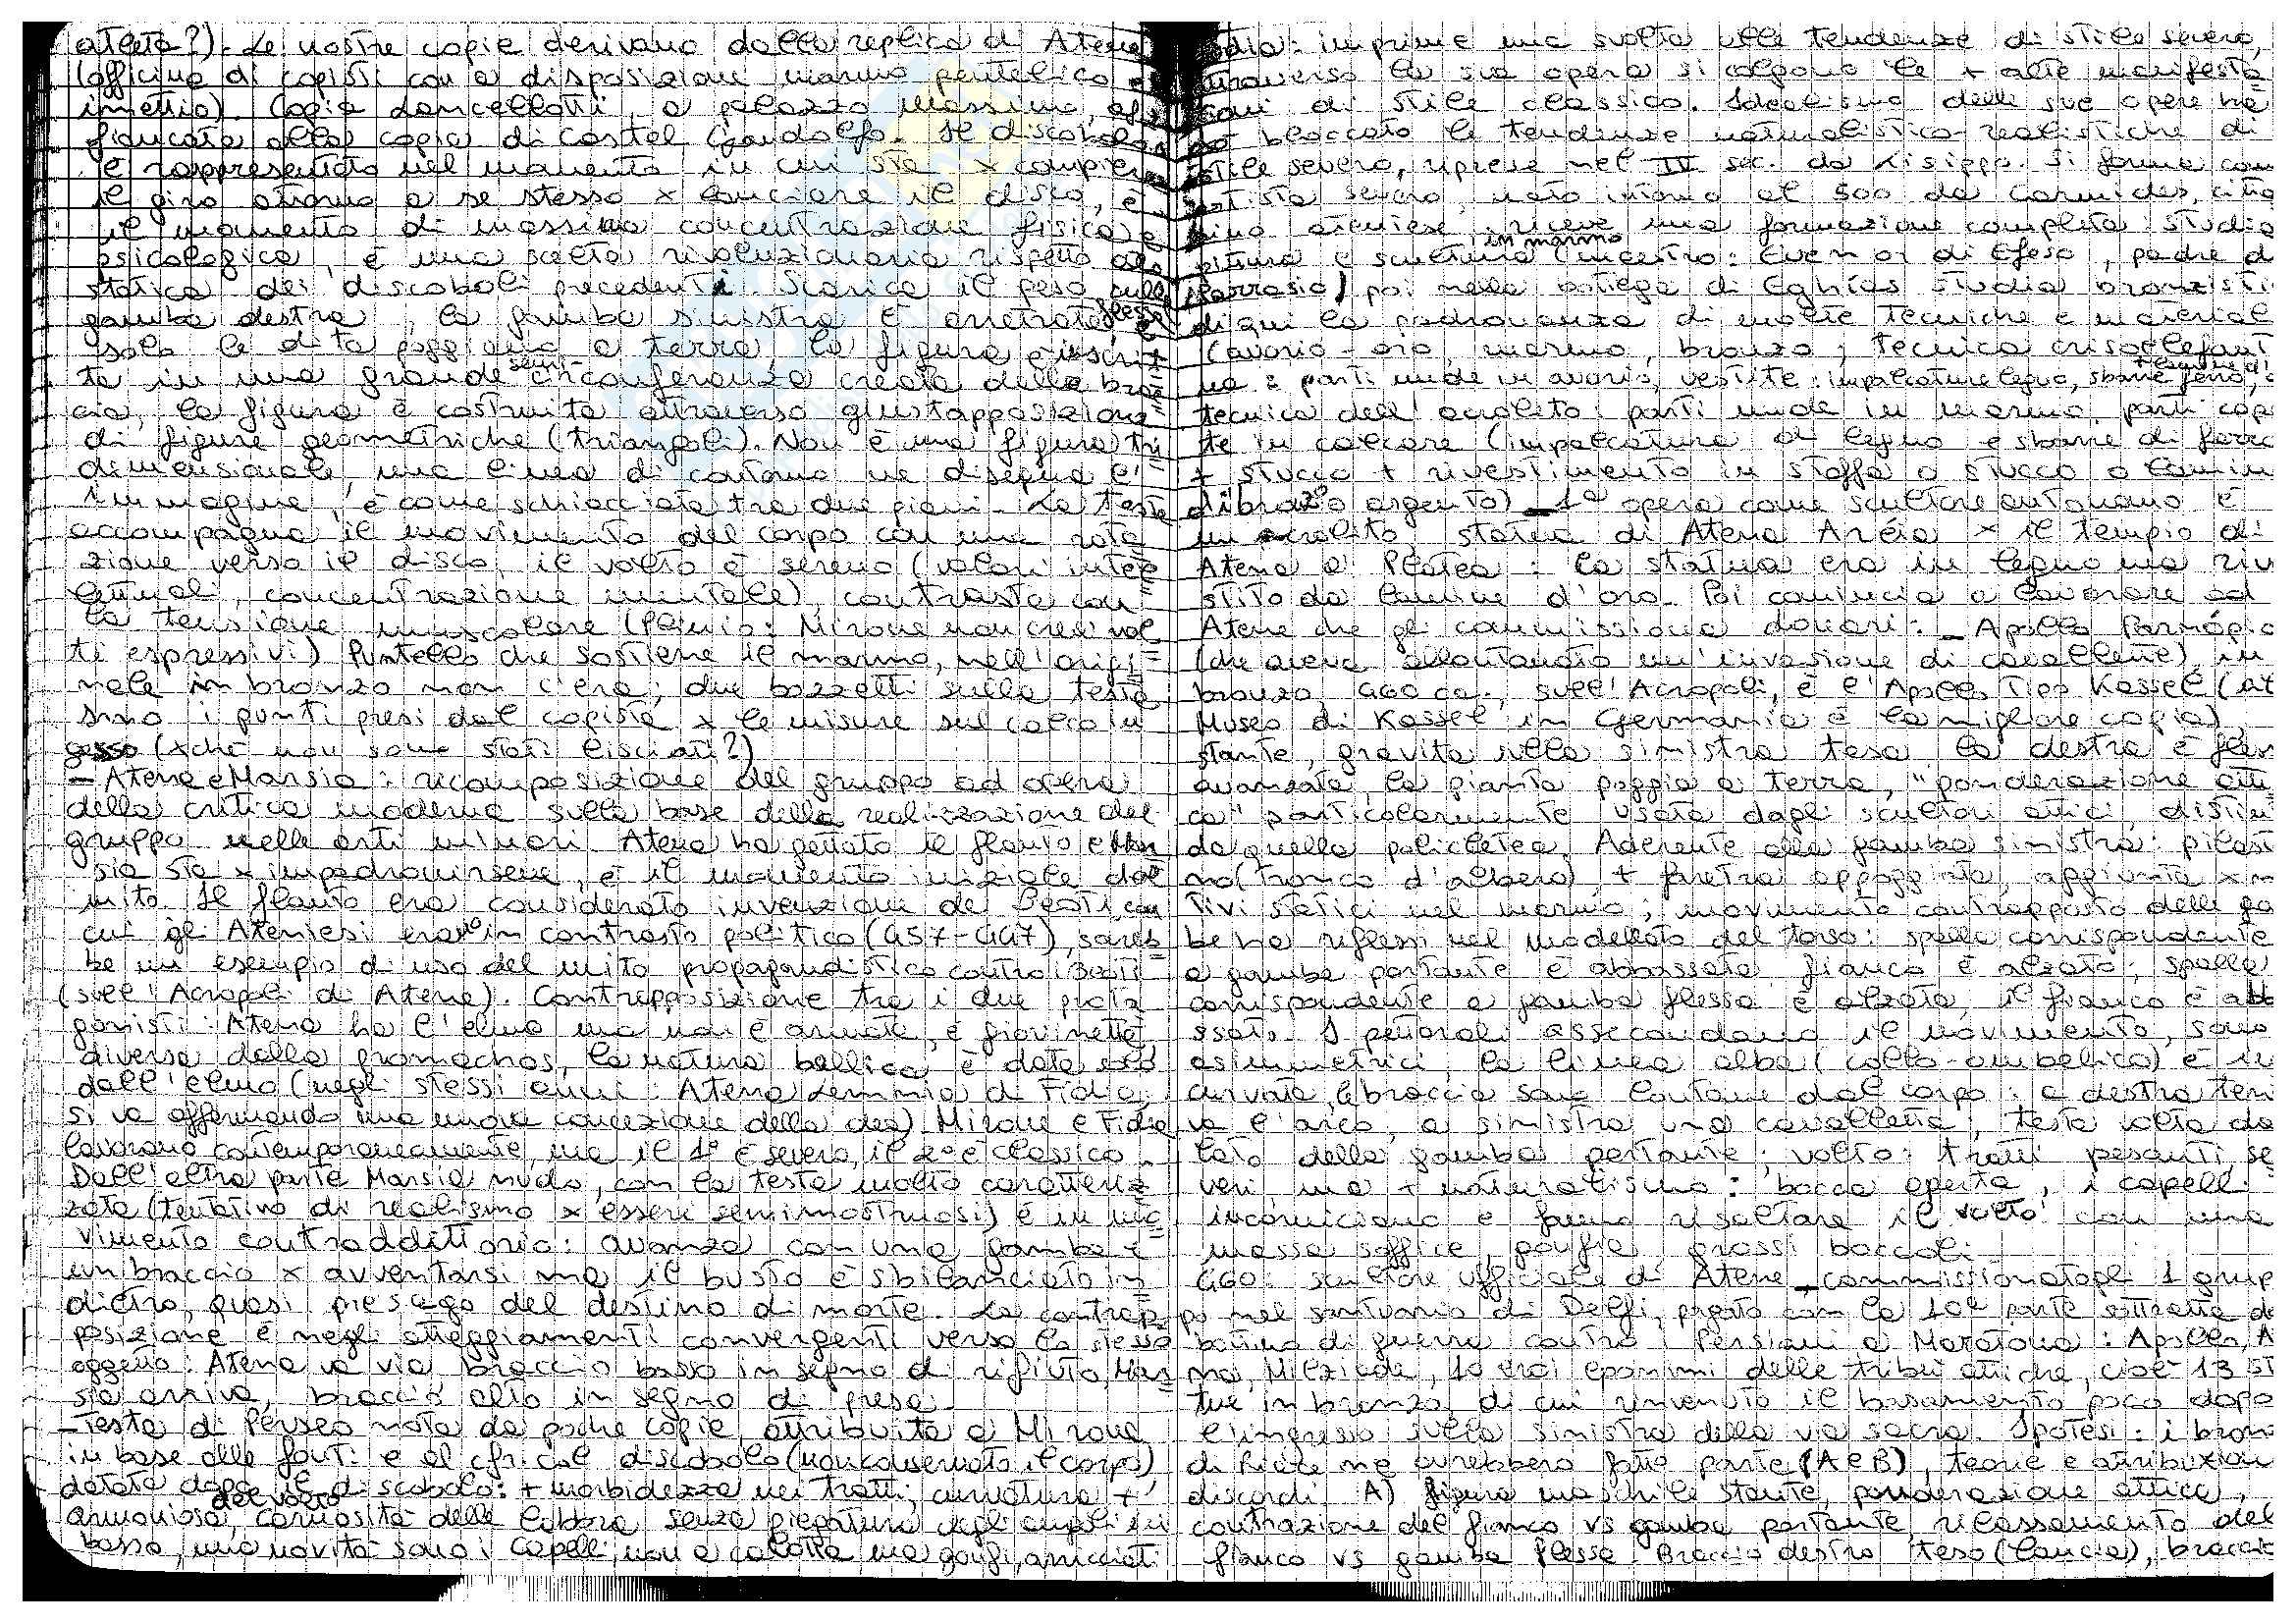 atleta?). Le nostre copie derivano dalla replica di Atene
(officina di copisti con a disposizione marmo pentelico e
imettio). Copia Lancellotti, a palazzo Massimo, af-
fiancata alla copia di Castel Gandolfo. Il discobolo
è rappresentato nel momento in cui sta x compiere
il giro attorno a se stesso x lanciare il disco, è
il momento di massima concentrazione fisica e
psicologica, è una scelta rivoluzionaria rispetto alla
statica dei discoboli precedenti. Scarica il peso sulla
gamba destra, la gamba sinistra è arretrata, flessa e
solo le dita poggiano a terra, la figura è inscrit-
ta in una grande semi-circonferenza creata dalle brac-
cia, la figura è costruita attraverso giustapposizione
di figure geometriche (triangoli). Non è una figura tri-
dimensionale, una linea di contorno ne disegna l'
immagine, è come schiacciata tra due piani. La testa
accompagna il movimento del corpo con una rota-
zione verso il disco, il volto è sereno (valori intel-
lettuali, concentrazione mentale), contrasta con
la tensione muscolare (Plinio: Mirone non creò vol-
ti espressivi) Puntello che sostiene il marmo, nell'origi-
nale in bronzo non c'era; due bozzetti sulla testa
sono i punti presi dal copista x le misure sul calco in
gesso (xché non sono stati lisciati?)
- Atena e Marsia: ricomposizione del gruppo ad opera
della critica moderna sulla base della realizzazione del
gruppo nelle arti minori. Atena ha gettato il flauto e Mar-
sia sta x impadronirsene, è il momento iniziale del
mito. Il flauto era considerato invenzione dei Beoti, con
cui gli Ateniesi erano in contrasto politico (457-447), sareb-
be un esempio di uso del mito propagandistico contro i Beoti
(sull'Acropoli di Atene). Contrapposizione tra i due prota-
gonisti: Atena ha l'elmo ma non è armata, è giovinetta
diversa dalla promachos, la natura bellica è data solo
dall'elmo (negli stessi anni: Atena Lemnia di Fidia,
si va affermando una nuova concezione della dea). Mirone e Fidia
lavorano contemporaneamente, ma il 1° è severo, il 2° è classico.
Dall'altra parte Marsia nudo, con la testa molto caratteriz-
zata (tentativo di realismo x esseri semimostruosi) è in mo-
vimento contraddittorio: avanza con una gamba e
un braccio x avventarsi ma il busto è sbilanciato in-
dietro, quasi presago del destino di morte. La contrap-
posizione è negli atteggiamenti convergenti verso lo stesso
oggetto: Atena va via, braccio basso in segno di rifiuto, Mar-
sia arriva, braccio alto in segno di presa.
- Testa di Perseo nota da poche copie, attribuita a Mirone
in base alle fonti e al cfr. col discobolo (non conservato il corpo)
datata dopo il discobolo: + morbidezza nei tratti, curvatura +
armoniosa del volto, carnosità delle labbra senza piegatura degli angoli in
basso, una novità sono i capelli, non a calotta ma gonfi, arricciati
Fidia: imprime una svolta alle tendenze di stile severo,
attraverso la sua opera si colgono le + alte manifesta-
zioni di stile classico. Idealismo delle sue opere ha
bloccato le tendenze naturalistico-realistiche di
stile severo, riprese nel IV sec. da Lisippo. Si forma com
artista severo, nato intorno al 500 da Carmides, citta-
dino ateniese, riceve una formazione completa: studia
pittura e scultura in marmo (maestro: Evenor di Efeso, padre d
Parrasio) poi nella bottega di Eghías studia bronzisti
di qui la padronanza di molte tecniche e material
(avorio-oro, marmo, bronzo; tecnica crisoelefant
na: parti nude in avorio, vestite: impalcature legno, sbarre ferro,
tecnica dell'acrolito: parti nude in marmo, parti cope
te in calcare (impalcatura di legno e sbarre di ferro
+ stucco + rivestimento in stoffa o stucco o lamin
di bronzo argento) - 1a opera come scultore autonomo è
un acrolito, statua di Atena Aréia x il tempio di
Atena a Platea: la statua era in legno ma riv
stito da lamine d'oro. Poi comincia a lavorare ad
Atene che gli commissiona donari: - Apollo Parnópio
(che aveva allontanato un'invasione di cavallette), in
bronzo, 460 ca., sull'Acropoli, è l'Apollo Tipo Kassel (at
Museo di Kassel in Germania è la migliore copia)
stante, gravita sulla sinistra tesa la destra è fless
avanzata, la pianta poggia a terra, "ponderazione atti
ca" particolarmente usata dagli scultori attici, distin
da quella policletea. Aderente alla gamba sinistra: pilast
no (tronco d'albero), + faretra appoggiata, aggiunta x m
tivi statici nel marmo; movimento contrapposto delle ga
be ha riflessi nel modellato del torso: spalla corrispondente
a gamba portante è abbassata, fianco è alzato; spalla
corrispondente a gamba flessa è alzata, il fianco è abb
ssato. I pettorali assecondano il movimento, sono
asimmetrici, la linea alba (collo-ombelico) è in
curvata, le braccia sono lontane dal corpo: a destra tene
va l'arco, a sinistra una cavalletta; testa volta da
lato della gamba portante; volto: tratti pesanti, se
veri, ma + naturalismo: bocca aperta, i capelli
incorniciano e fanno risaltare il volto con una
massa soffice, gonfia, grossi boccoli.
460: scultore ufficiale di Atene - commissionatogli 1 grup-
po nel santuario di Delfi, pagato con la 10a parte sottratta da
bottino di guerra contro i Persiani a Maratona: Apollo, A
na, Milziade, 10 eroi eponimi delle tribù attiche, cioè 13 st
tue in bronzo, di cui rinvenuto il basamento poco dopo
l'ingresso sulla sinistra della via sacra. Ipotesi: i bron
di Riace ne avrebbero fatto parte (A e B), teorie e attribuzion
discordi. A) figura maschile stante, ponderazione attica,
contrazione del fianco vs gamba portante, rilassamento del
fianco vs gamba flessa. Braccio destro teso (lancia), braccio